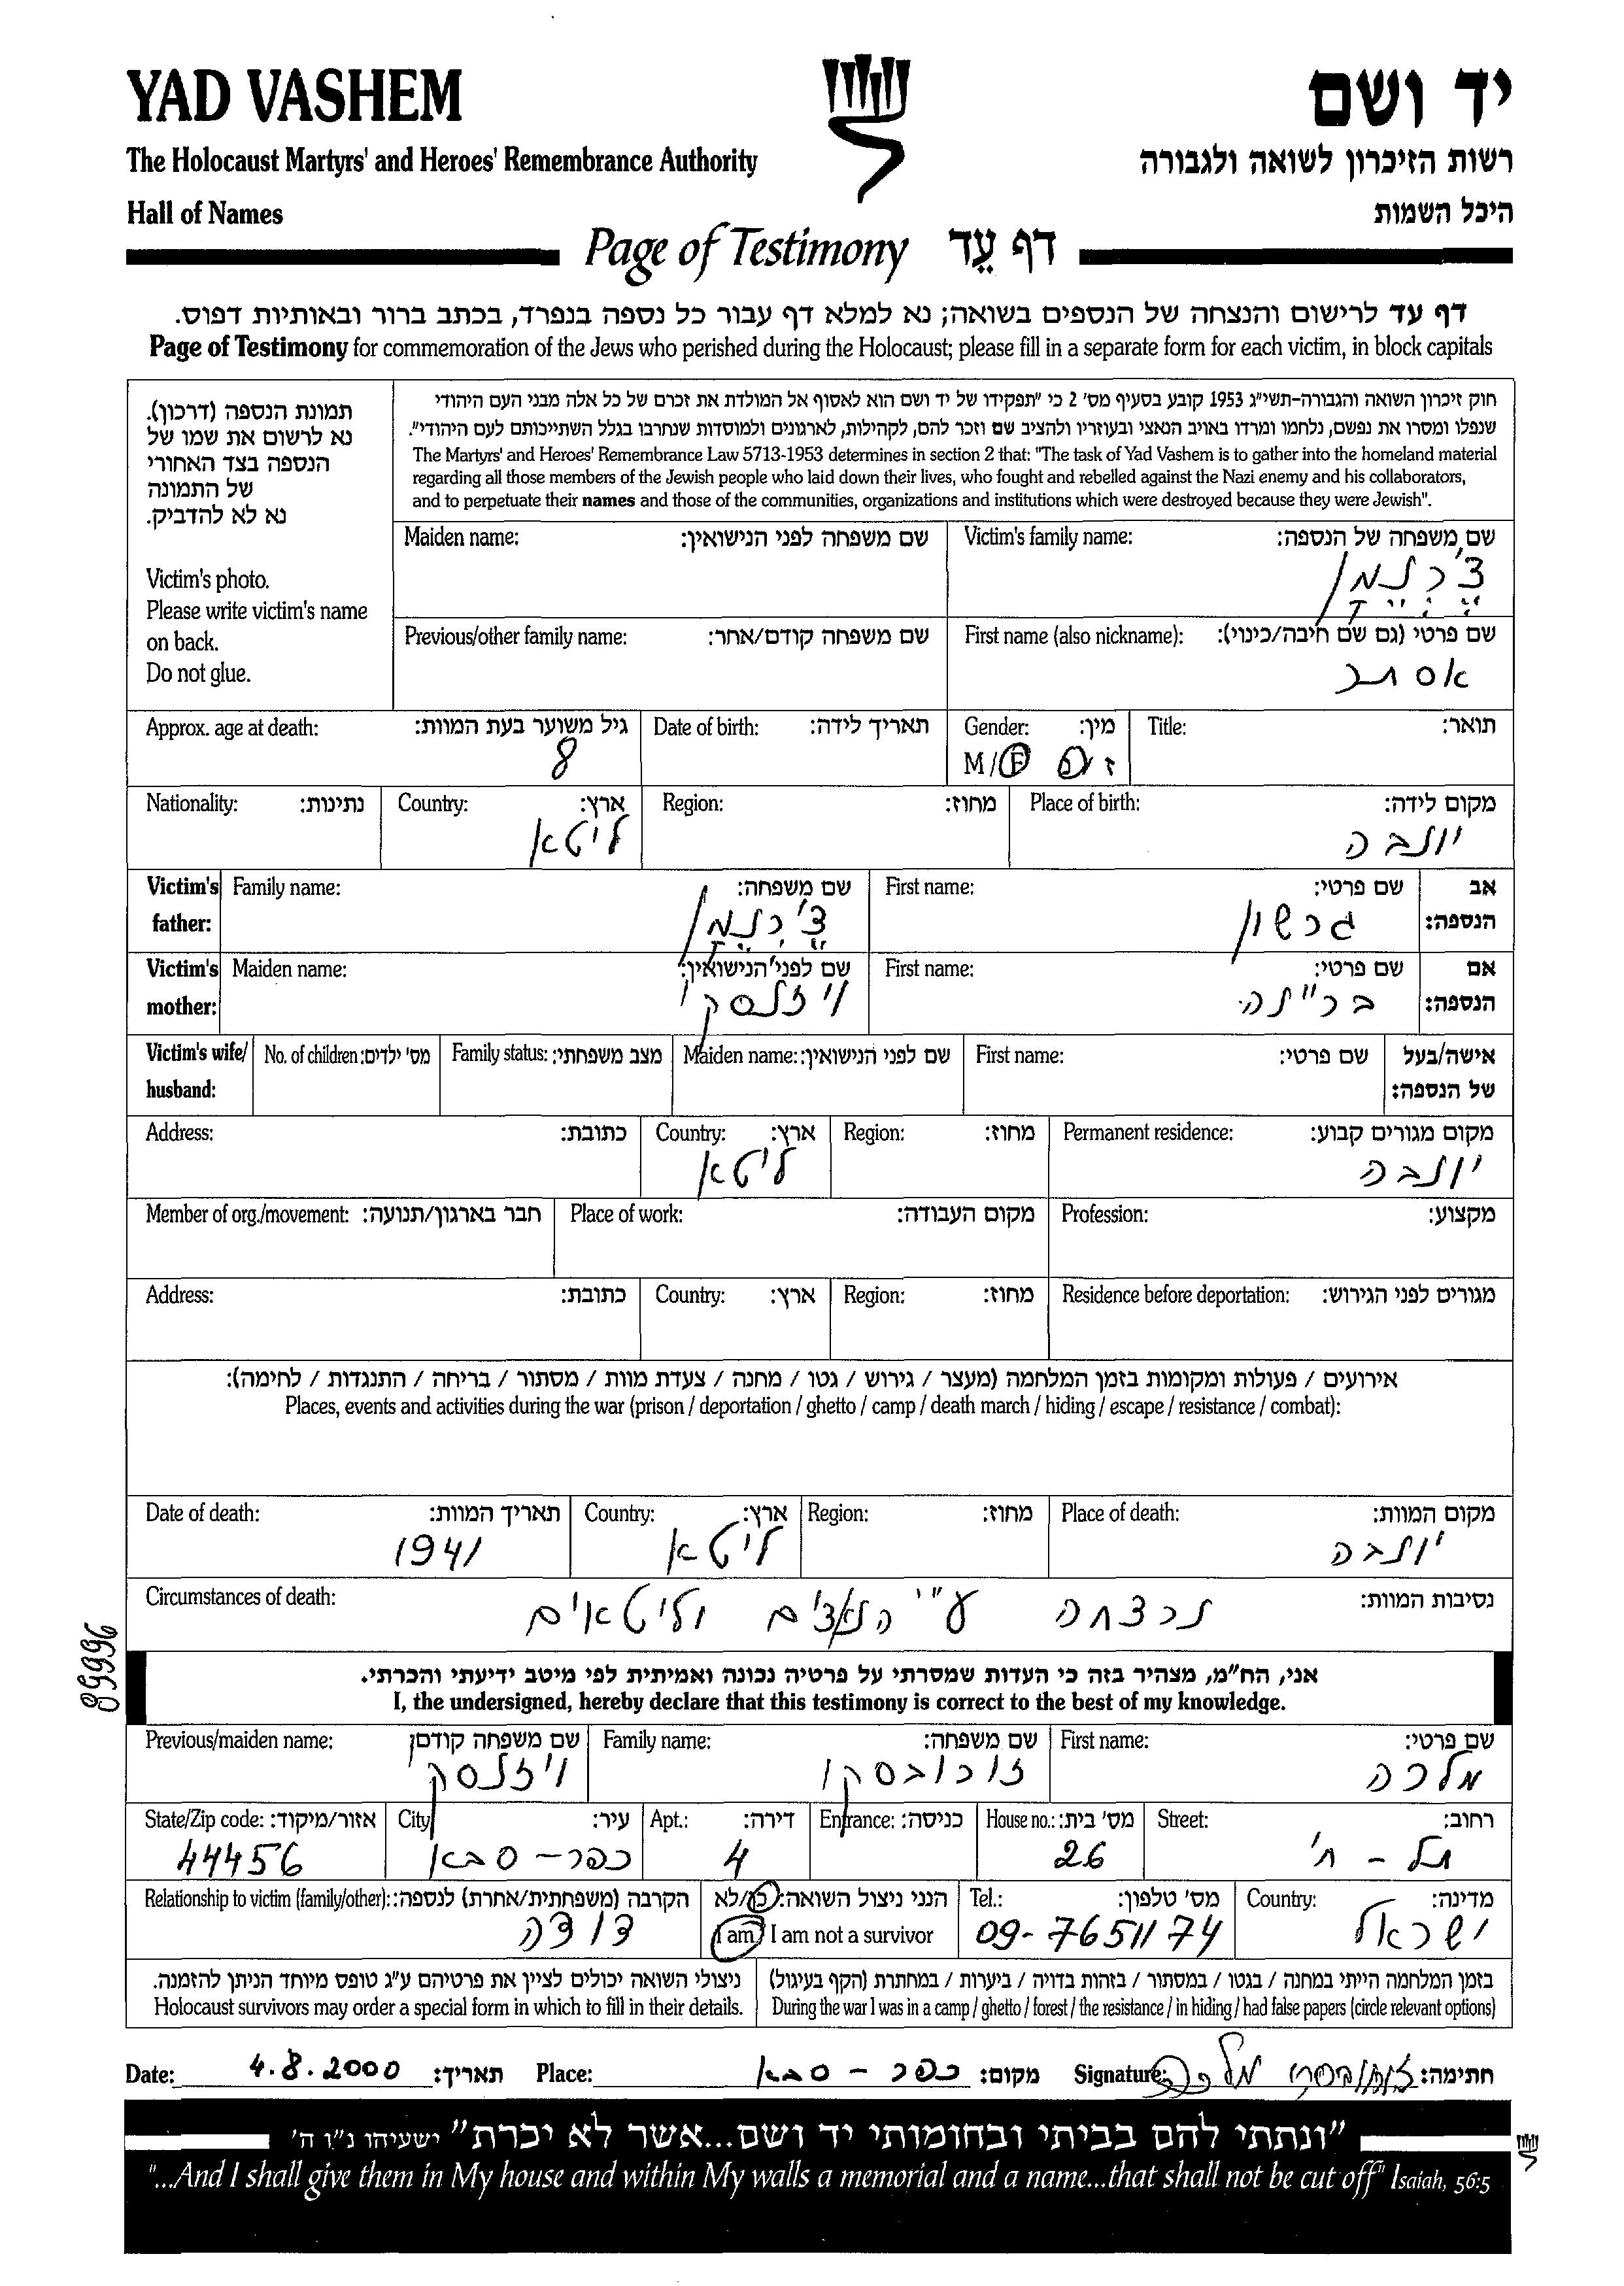 YAD VASHEM
יד ושם
The Holocaust Martyrs' and Heroes' Remembrance Authority
רשות הזיכרון לשואה ולגבורה
Hall of Names
היכל השמות
Page of Testimony דף עֵד
דף עד לרישום והנצחה של הנספים בשואה; נא למלא דף עבור כל נספה בנפרד, בכתב ברור ובאותיות דפוס.
Page of Testimony for commemoration of the Jews who perished during the Holocaust; please fill in a separate form for each victim, in block capitals
תמונת הנספה (דרכון).
נא לרשום את שמו של
הנספה בצד האחורי
של התמונה
נא לא להדביק.
Victim's photo.
Please write victim's name
on back.
Do not glue.
חוק זיכרון השואה והגבורה-תשי"ג 1953 קובע בסעיף מס' 2 כי "תפקידו של יד ושם הוא לאסוף אל המולדת את זכרם של כל אלה מבני העם היהודי
שנפלו ומסרו את נפשם, נלחמו ומרדו באויב הנאצי ובעוזריו ולהציב שם וזכר להם, לקהילות, לארגונים ולמוסדות שנחרבו בגלל השתייכותם לעם היהודי".
The Martyrs' and Heroes' Remembrance Law 5713-1953 determines in section 2 that: "The task of Yad Vashem is to gather into the homeland material
regarding all those members of the Jewish people who laid down their lives, who fought and rebelled against the Nazi enemy and his collaborators,
and to perpetuate their names and those of the communities, organizations and institutions which were destroyed because they were Jewish".
Maiden name: שם משפחה לפני הנישואין:
Victim's family name: שם משפחה של הנספה:
צ'רנמן
Previous/other family name: שם משפחה קודם/אחר:
First name (also nickname): שם פרטי (גם שם חיבה/כינוי):
אסתר
Approx. age at death: גיל משוער בעת המוות:
8
Date of birth: תאריך לידה:
Gender: מין:
M/F ז/נ
Title: תואר:
Nationality: נתינות:
Country: ארץ:
ליטא
Region: מחוז:
Place of birth: מקום לידה:
יונבה
Victim's father: Family name: שם משפחה:
צ'רנמן
First name: שם פרטי:
גרשון
אב הנספה:
Victim's mother: Maiden name: שם לפני הנישואין:
ויזנסקי
First name: שם פרטי:
בריינה
אם הנספה:
Victim's wife/ husband: No. of children: מס' ילדים: Family status: מצב משפחתי: Maiden name: שם לפני הנישואין: First name: שם פרטי: אישה/בעל של הנספה:
Address: כתובת:
Country: ארץ:
ליטא
Region: מחוז:
Permanent residence: מקום מגורים קבוע:
יונבה
Member of org./movement: חבר בארגון/תנועה: Place of work: מקום העבודה: Profession: מקצוע:
Address: כתובת: Country: ארץ: Region: מחוז: Residence before deportation: מגורים לפני הגירוש:
אירועים / פעולות ומקומות בזמן המלחמה (מעצר / גירוש / גטו / מחנה / צעדת מוות / מסתור / בריחה / התנגדות / לחימה):
Places, events and activities during the war (prison / deportation / ghetto / camp / death march / hiding / escape / resistance / combat):
Date of death: תאריך המוות:
1941
Country: ארץ:
ליטא
Region: מחוז:
Place of death: מקום המוות:
יונבה
Circumstances of death: נסיבות המוות:
נרצחה ע"י הנאצים וליטאים
89996
אני, הח"מ, מצהיר בזה כי העדות שמסרתי על פרטיה נכונה ואמיתית לפי מיטב ידיעתי והכרתי.
I, the undersigned, hereby declare that this testimony is correct to the best of my knowledge.
Previous/maiden name: שם משפחה קודם:
ויזנסקי
Family name: שם משפחה:
זוכובסקי
First name: שם פרטי:
מלכה
State/Zip code: אזור/מיקוד:
44456
City: עיר:
כפר-סבא
Apt.: דירה:
4
Entrance: כניסה:
House no.: מס' בית:
26
Street: רחוב:
תל-חי
Relationship to victim (family/other): הקרבה (משפחתית/אחרת) לנספה:
דודה
הנני ניצול השואה: כן/לא
I am/ I am not a survivor
Tel.: מס' טלפון:
09-7651174
Country: מדינה:
ישראל
ניצולי השואה יכולים לציין את פרטיהם ע"ג טופס מיוחד הניתן להזמנה.
Holocaust survivors may order a special form in which to fill in their details.
בזמן המלחמה הייתי במחנה / בגטו / במסתור / בזהות בדויה / ביערות / במחתרת (הקף בעיגול)
During the war I was in a camp / ghetto / forest / the resistance / in hiding / had false papers (circle relevant options)
Date: 4.8.2000 תאריך: Place: כפר-סבא מקום: Signature: זוכובסקי מלכה חתימה:
"ונתתי להם בביתי ובחומותי יד ושם...אשר לא יכרת" ישעיהו נ"ו ה'
"...And I shall give them in My house and within My walls a memorial and a name...that shall not be cut off" Isaiah, 56:5